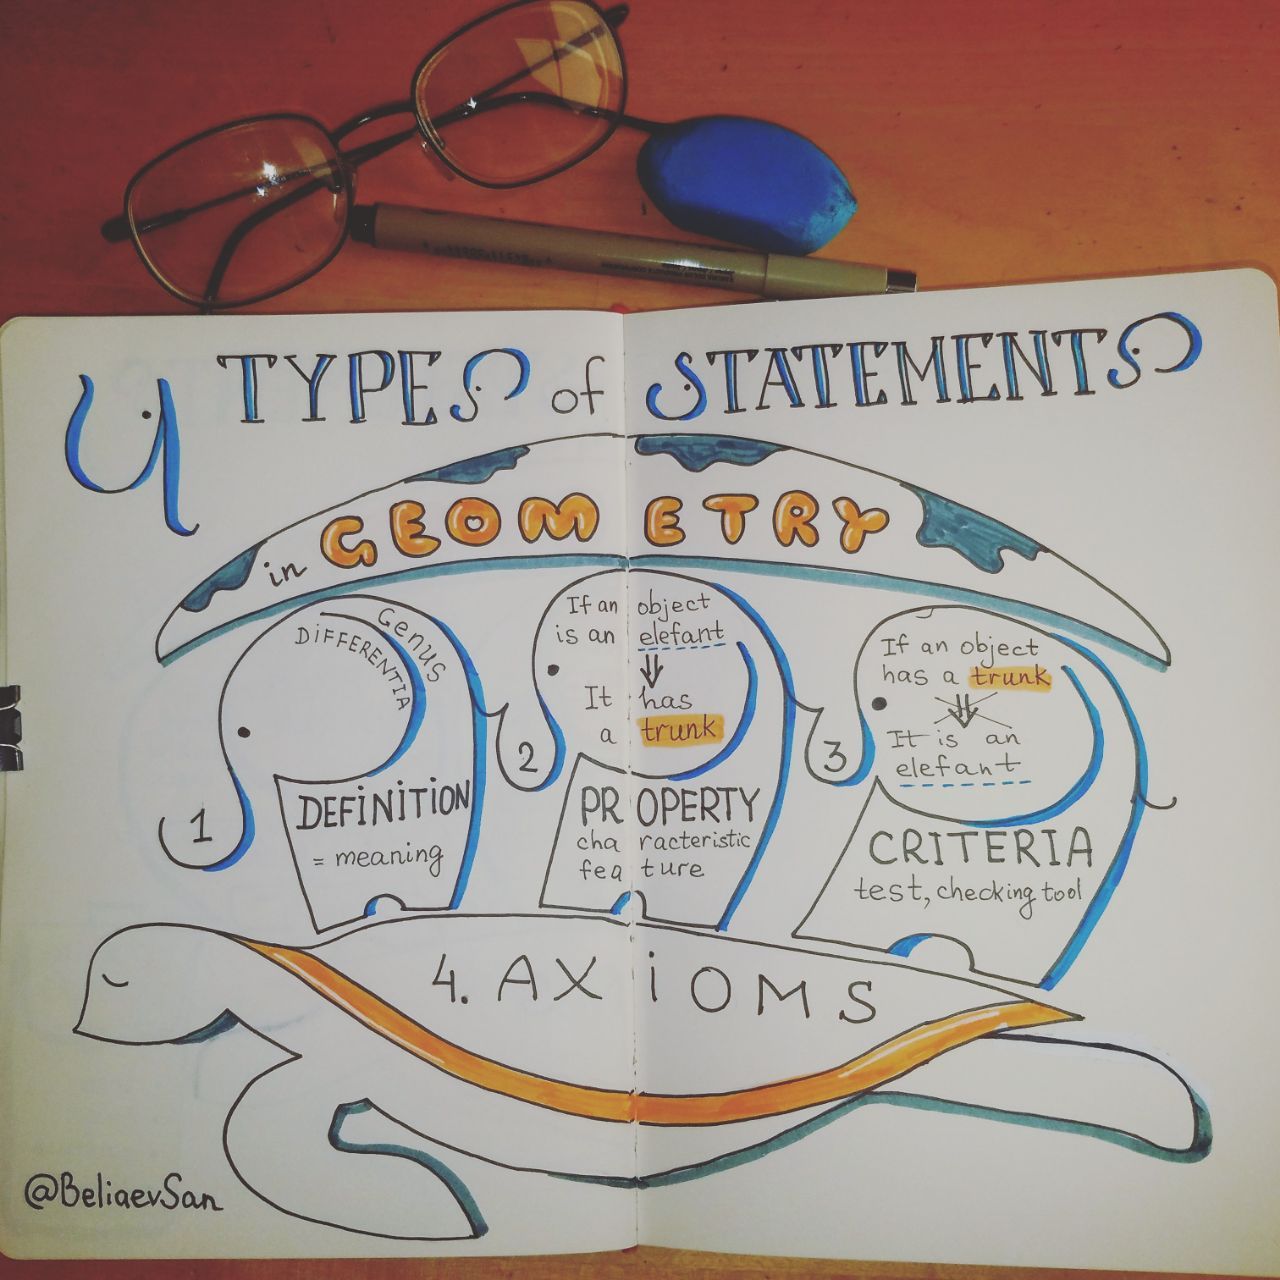 4 TYPES of STATEMENTS
in GEOMETRY
Genus
DiFFERENTiA
1
DEFiNiTiON
= meaning
If an object
is an elefant
It has
a trunk
2
PROPERTY
characteristic
feature
If an object
has a trunk
It is an
elefant
3
CRITERIA
test, checking tool
4. AXiOMS
@BeliaevSan